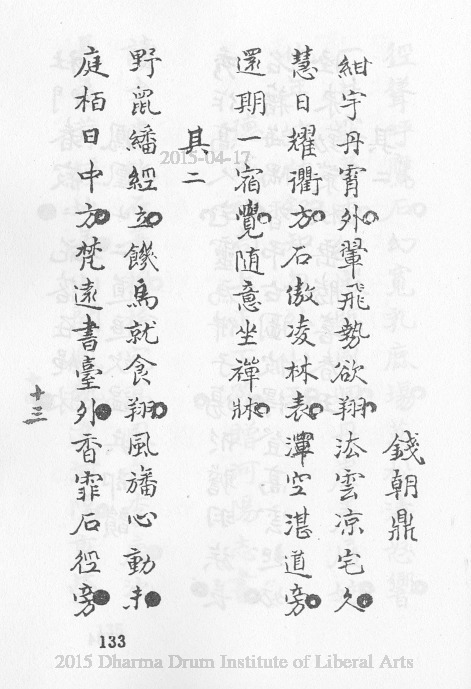 錢朝鼎
紺宇丹霄外翬飛勢欲翔法雲凉宅久
慧日耀衢方石傲凌林表潭空湛道旁
還期一宿覺随意坐禪牀
其二
野鼠繙經立饑烏就食翔風旛心動未
庭栢日中方梵遠書臺外香霏石徑旁
十三
133
2015-04-17
2015 Dharma Drum Institute of Liberal Arts